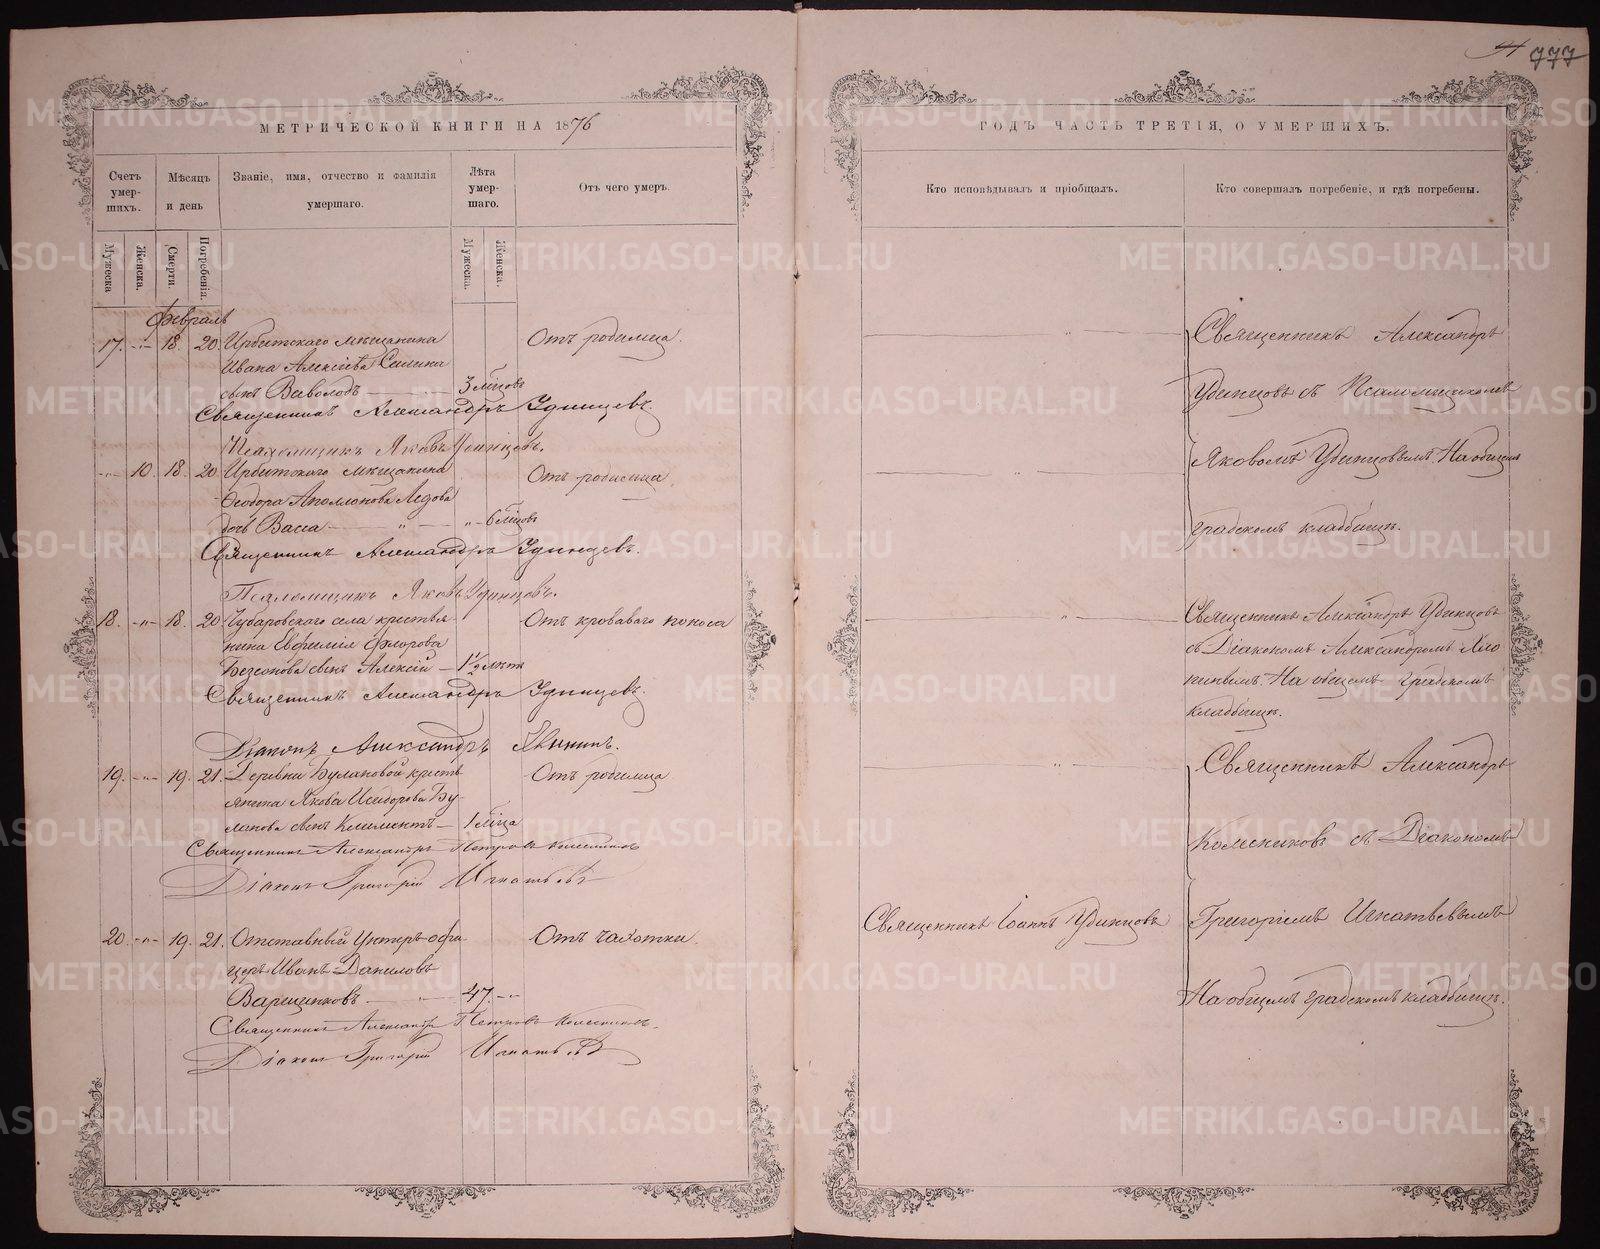 777
МЕТРИЧЕСКОЙ КНИГИ НА 1876
Счетъ умер-шихъ.
Мѣсяцъ и день
Званіе, имя, отчество и фамилія умершаго.
Лѣта умер-шаго.
Отъ чего умеръ.
Мужеска
Женска.
Смерти.
Погребенія.
Мужеска.
Женска.
Февраль
17. -"- 18. 20. Ирбитскаго мѣщанина
Ивана Алексѣева
сынъ Всеволодъ 3 мѣсцовъ
Отъ родимца.
Священникъ Александръ Удинцевъ.
Псаломщикъ Яковъ Удинцовъ.
-"- 10. 18. 20. Ирбитскаго мѣщанина
Ѳеодора Аполлонова Ледова
дочь Васса " " 6 мѣсцовъ
Отъ родимца
Священникъ Александръ Удинцевъ.
Псаломщикъ Яковъ Удинцовъ.
18. -"- 18. 20. Чубаровскаго села крестья-
нина Евфимія Флорова
Безсонова сынъ Алексій 1½ лѣтъ
Отъ кроваваго поноса
Священникъ Александръ Удинцевъ.
Діаконъ Александръ
19. -"- 19. 21. Деревни Булановой кресть-
янина Якова Исидорова Бу-
ланова сынъ Климентъ 1 мѣсца
Отъ родимца
Священникъ Александръ Петровъ Колесниковъ
Діаконъ Григорій Игнатьевъ
20. -"- 19. 21. Отставный Унтеръ-офи-
церъ Иванъ Даниловъ
47. -"-
Отъ чахотки.
Священникъ Александръ Петровъ Колесниковъ.
Діаконъ Григорій Игнатьевъ
ГОДЪ ЧАСТЬ ТРЕТІЯ, О УМЕРШИХЪ.
Кто исповѣдывалъ и пріобщалъ.
Кто совершалъ погребеніе, и гдѣ погребены.
Священникъ Александръ
Удинцовъ съ Псаломщикомъ
Яковомъ Удинцовымъ. На общемъ
градскомъ кладбищѣ.
Священникъ Александръ Удинцовъ
съ Діакономъ Александромъ Хло
пинымъ. На общемъ градскомъ
кладбищѣ.
Священникъ Александръ
Колесниковъ съ Діакономъ
Священникъ Іоаннъ Удинцовъ
Григоріемъ Игнатьевымъ
На общемъ градскомъ кладбищѣ.
METRIKI.GASO-URAL.RU